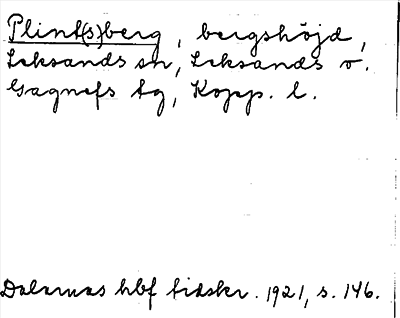 Plint(s)berg, bergshöjd,
Leksands sn, Leksands o.
Gagnefs tg, Kopp. l.
Dalarnas hbf tidskr. 1921, s. 146.